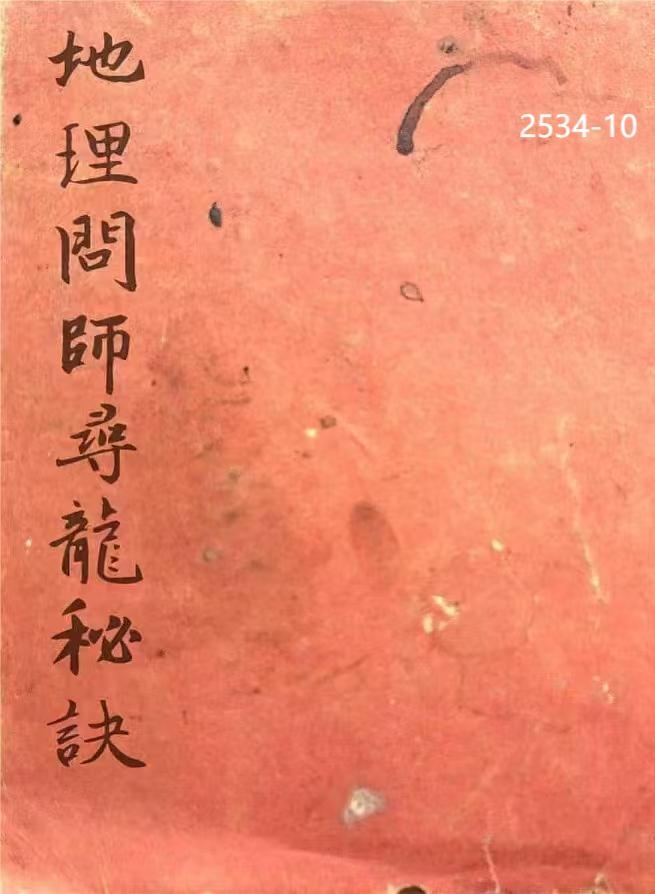 地理問師尋龍秘訣
2534-10